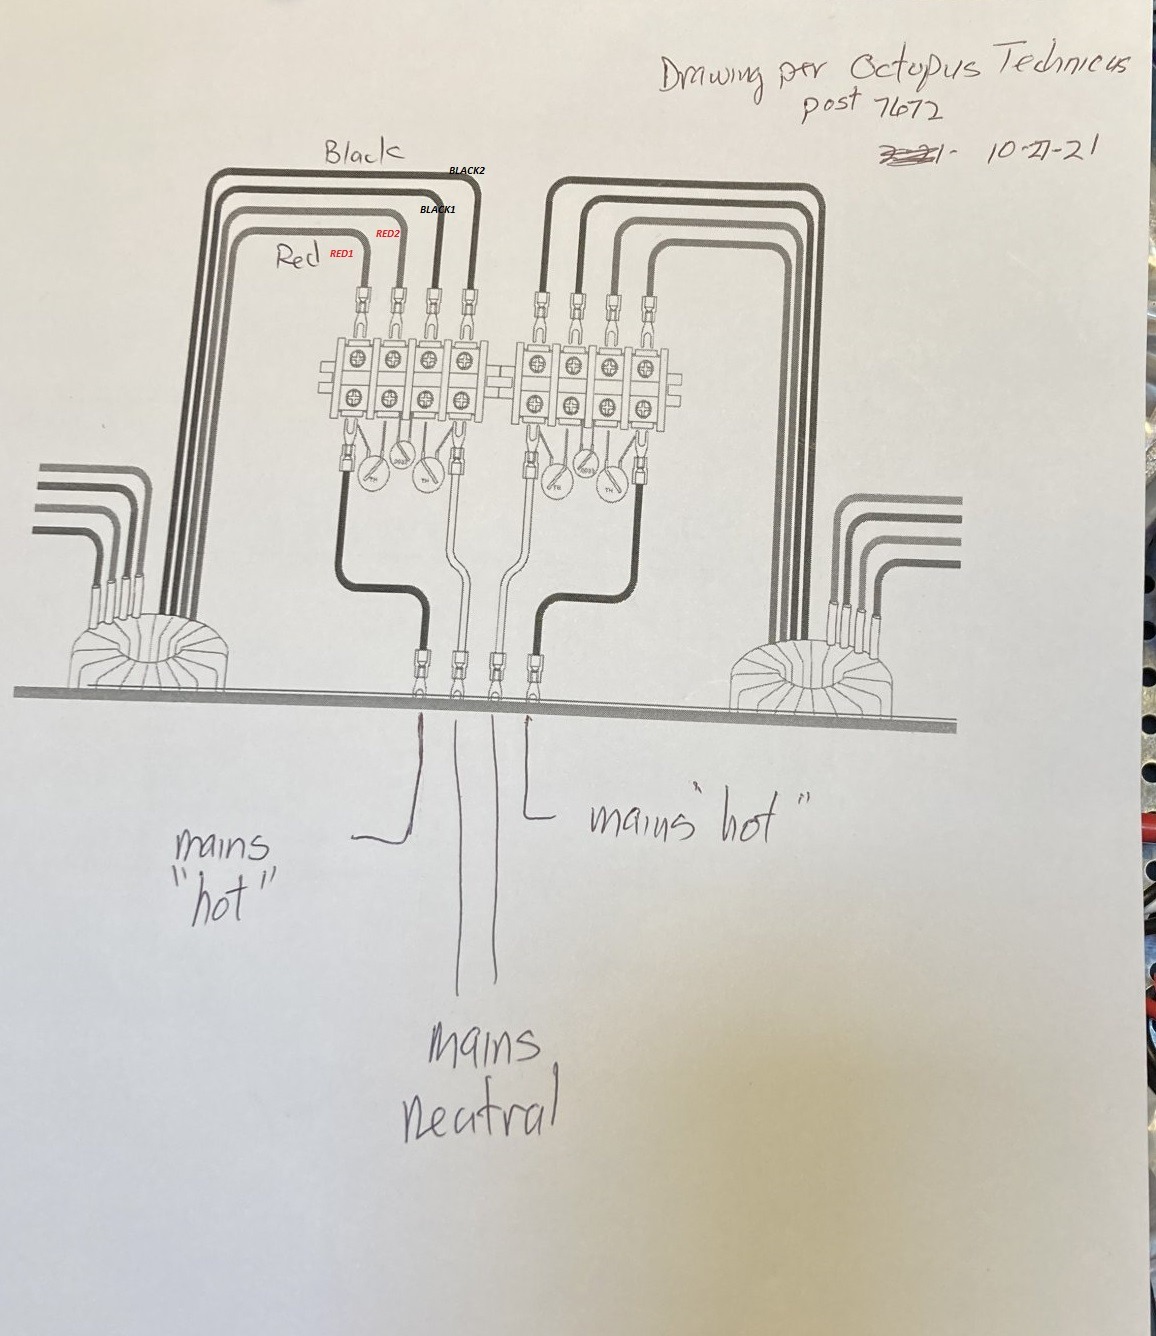 Drawing per Octopus Technicus
post 7672
10-21-21
Black
BLACK2
BLACK1
RED2
Red
RED1
TH
TH
TH
TH
mains "hot"
mains
"hot"
mains
neutral